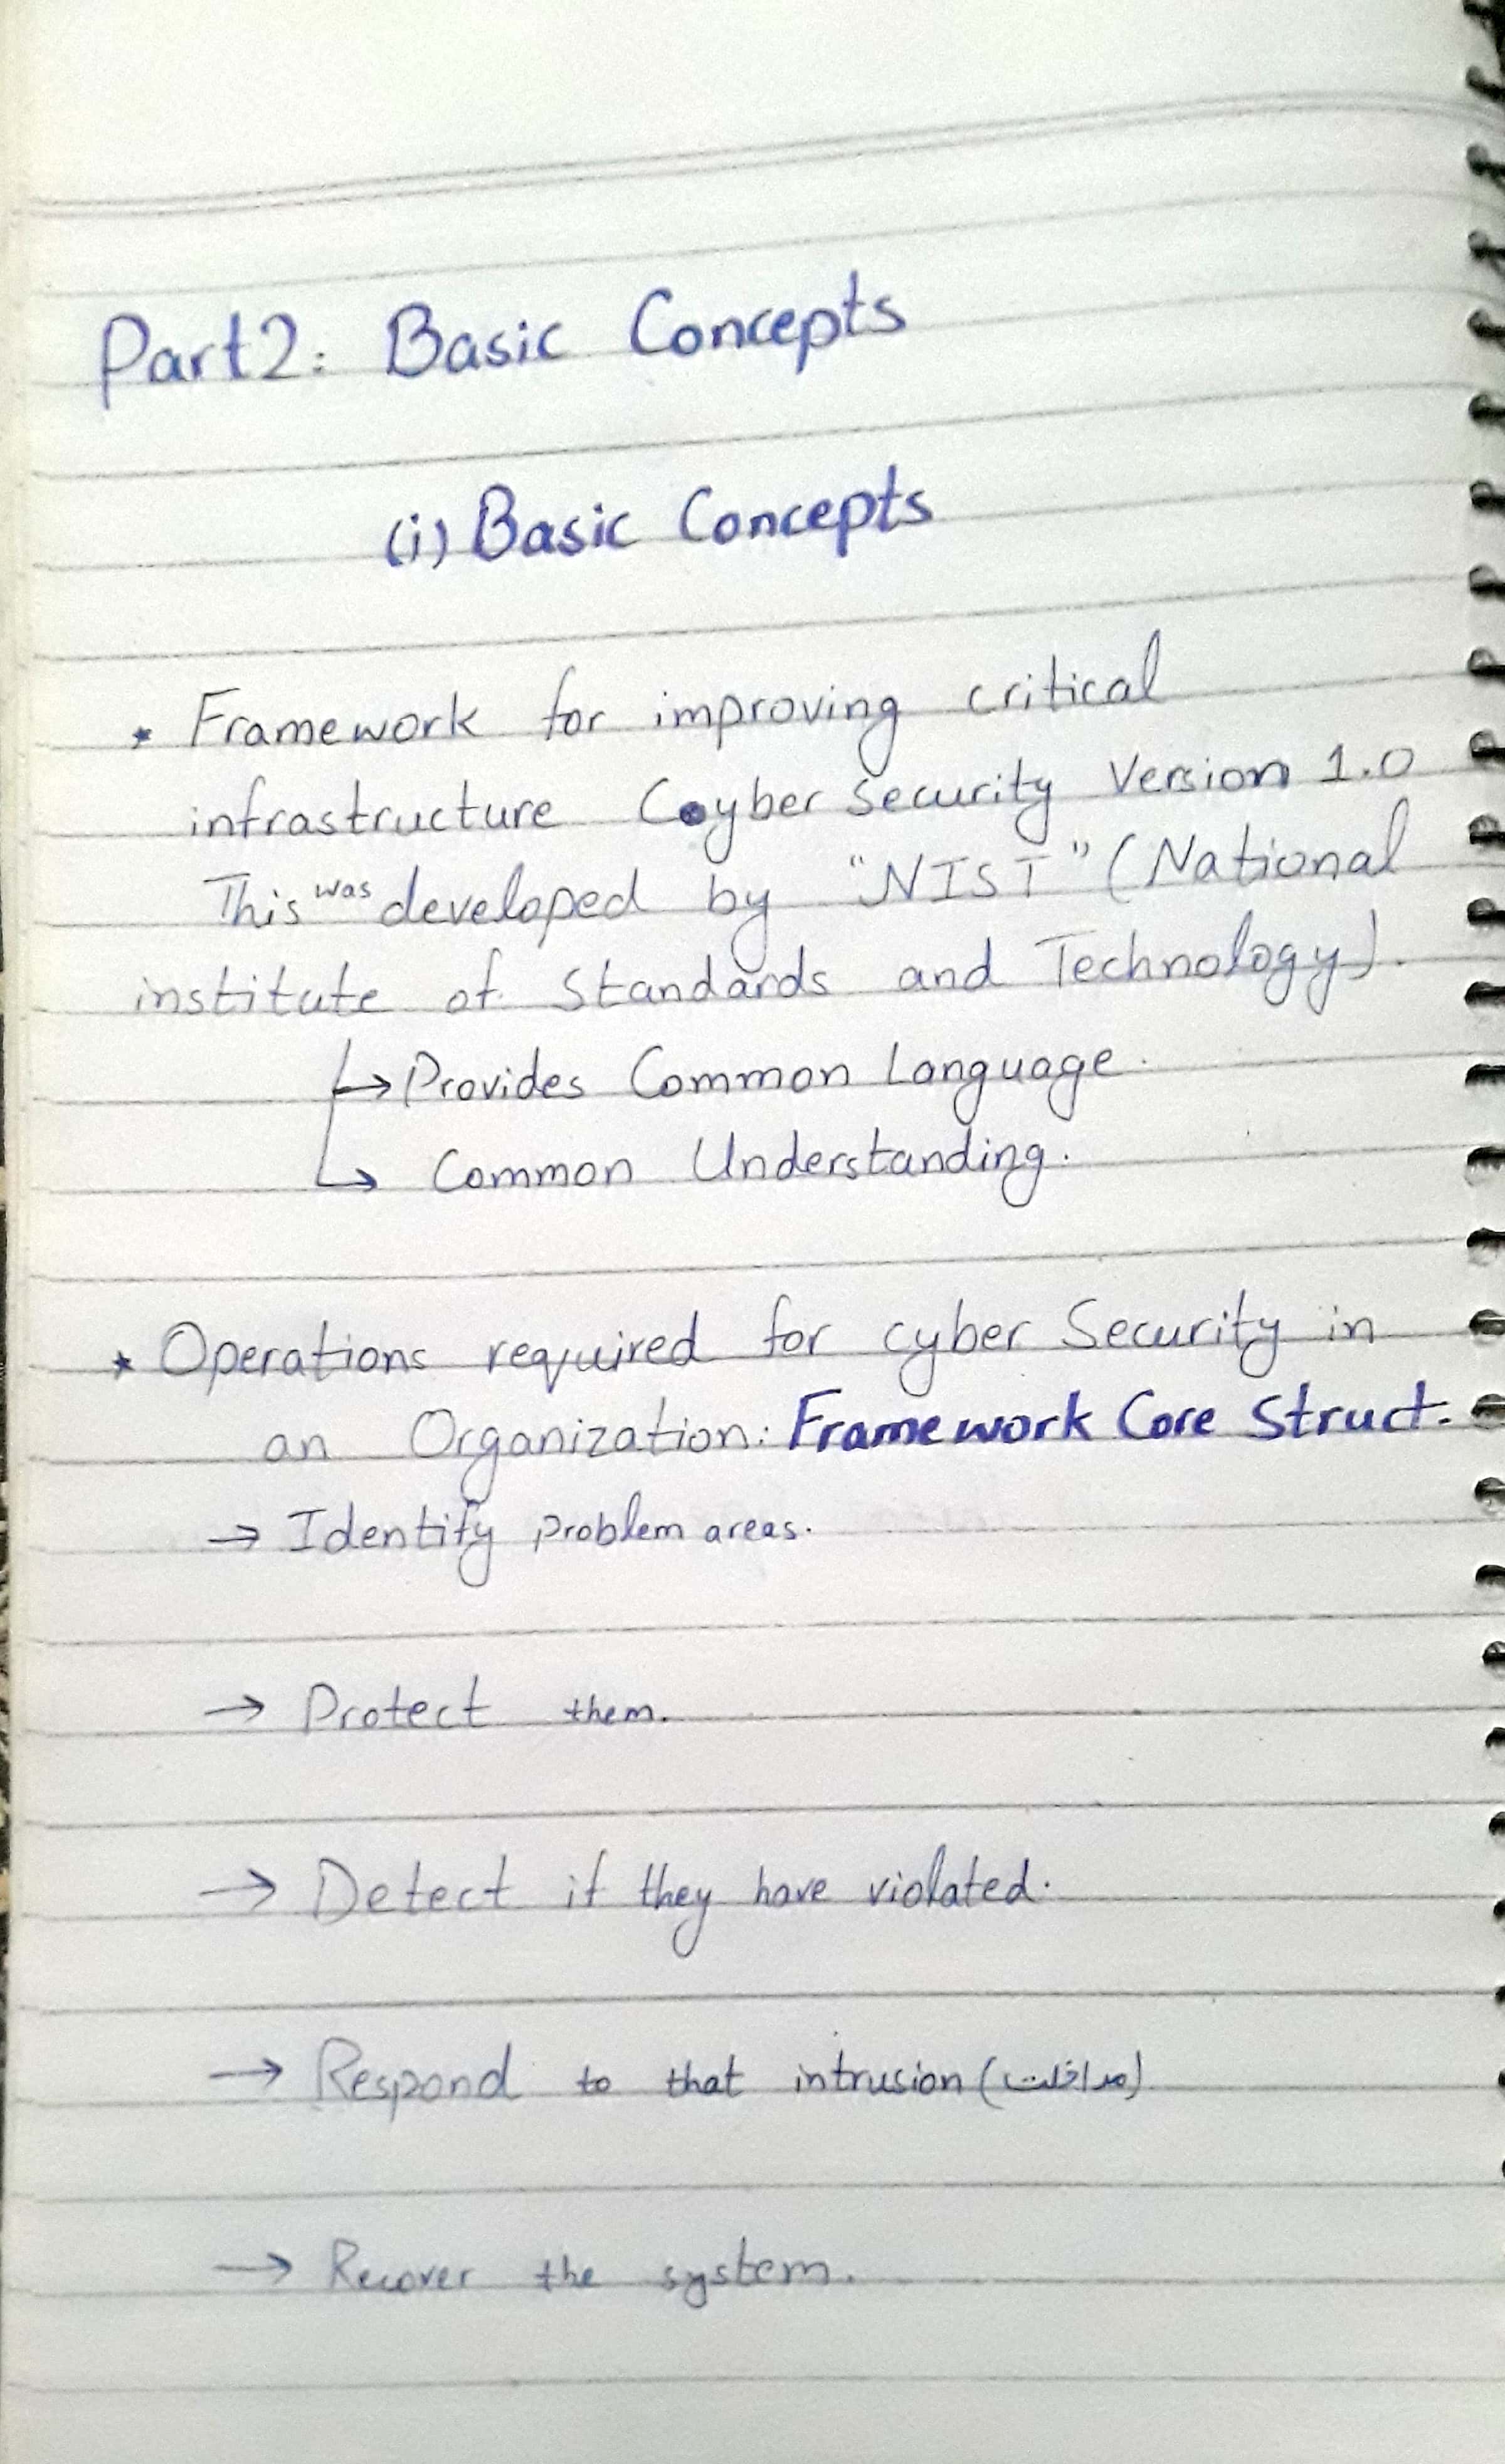 Part2: Basic Concepts
(i) Basic Concepts
* Framework for improving critical
infrastructure Cyber Security Version 1.0
This was developed by "NIST" (National
institute of Standards and Technology).
→ Provides Common Language.
↳ Common Understanding.
* Operations required for cyber Security in
an Organization: Framework Core Struct.
→ Identify problem areas.
→ Protect them.
→ Detect if they have violated.
→ Respond to that intrusion (مداخلت)
→ Recover the system.